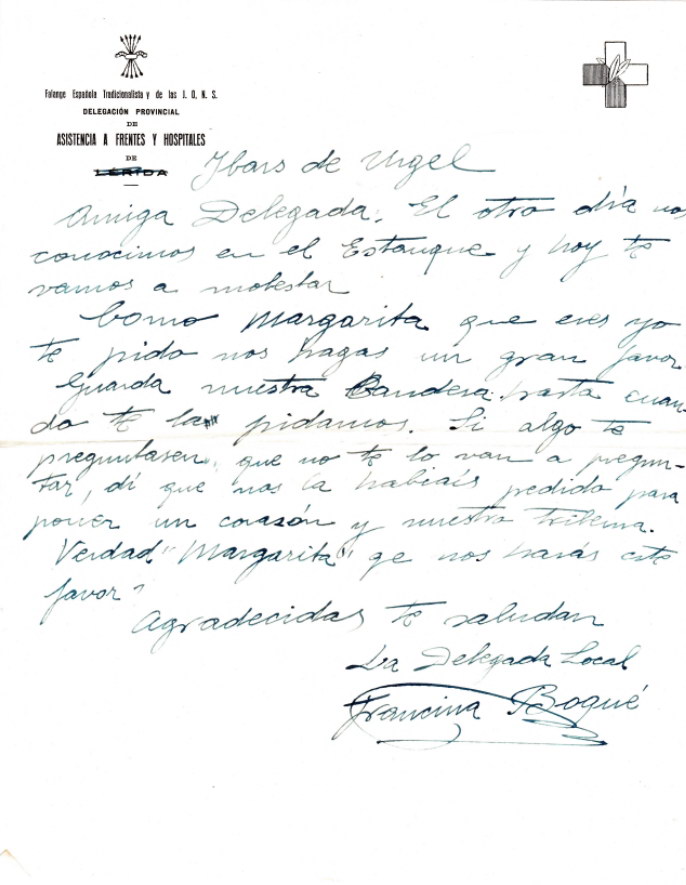 Falange Española Tradicionalista y de las J. O. N. S.
DELEGACIÓN PROVINCIAL
DE
ASISTENCIA A FRENTES Y HOSPITALES
DE
LÉRIDA
Ybars de Urgel
Amiga Delegada: El otro día nos
conocimos en el Estanque y hoy te
vamos a molestar
Como Margarita que eres yo
te pido nos hagas un gran favor
Guarda nuestra Bandera hasta cuan-
do te la pidamos. Si algo te
preguntasen, que no te lo van a pregun-
tar, di que nos la habíais pedido para
poner un corazón y nuestro
Verdad "Margarita" qe nos harás este
favor?
Agradecidas te saludan
La Delegada Local
Francina Boqué